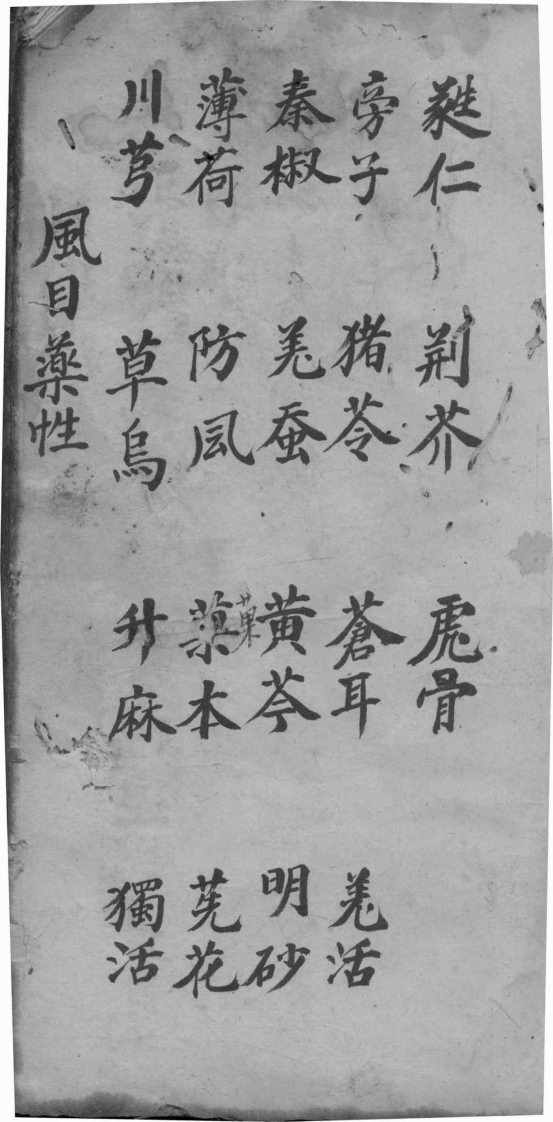 蕤仁 荆芥 虎骨
旁子 猪苓 蒼耳 羌活
秦椒 羌蚕 黄芩 明砂
薄荷 防凬 菒菓本 芫花
川芎 草烏 升麻 獨活
風目藥性